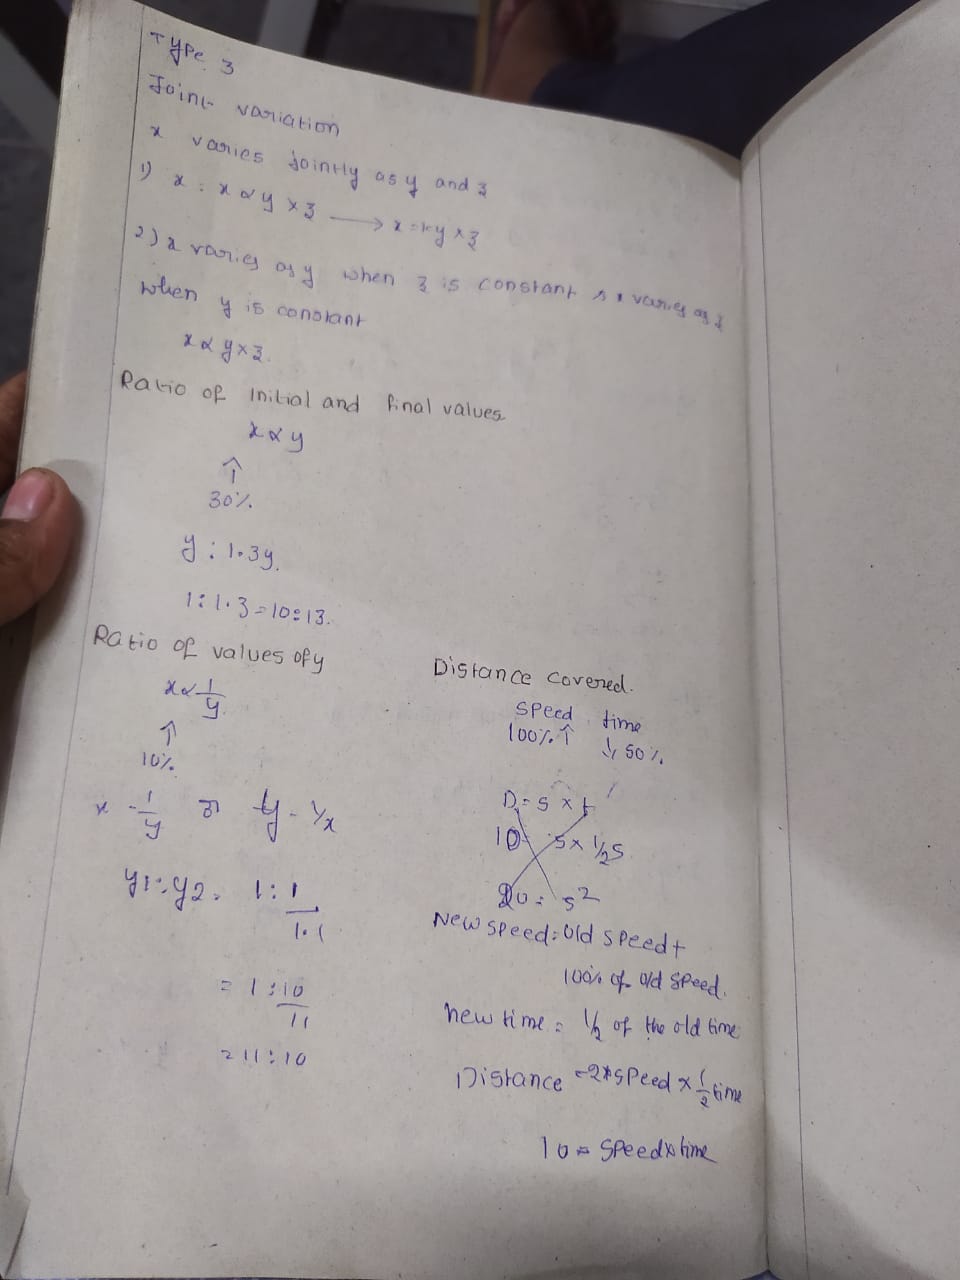 Type 3
Joint variation
x varies jointly as y and z
1) x : x ∝ y × z ⟶ x = ky × z
2) x varies as y when z is constant & x varies as z
when y is constant
x ∝ y × z.
Ratio of Initial and final values
x ∝ y
↑
30%.
y : 1.3y.
1 : 1.3 = 10 : 13.
Ratio of values of y
x ∝ 1/y.
↑
10%.
x - 1/y or y - 1/x
y1 : y2 = 1 : 1/1.1
= 1 : 10/11
= 11 : 10
Distance covered.
speed, time
100% ↑ ↓ 50%.
D = s × t
10 s × 1/2 s
20 = s 2
New speed = Old speed +
100% of old speed.
New time = 1/2 of the old time
Distance = 2 * speed × 1/2 time
10 = Speed × time